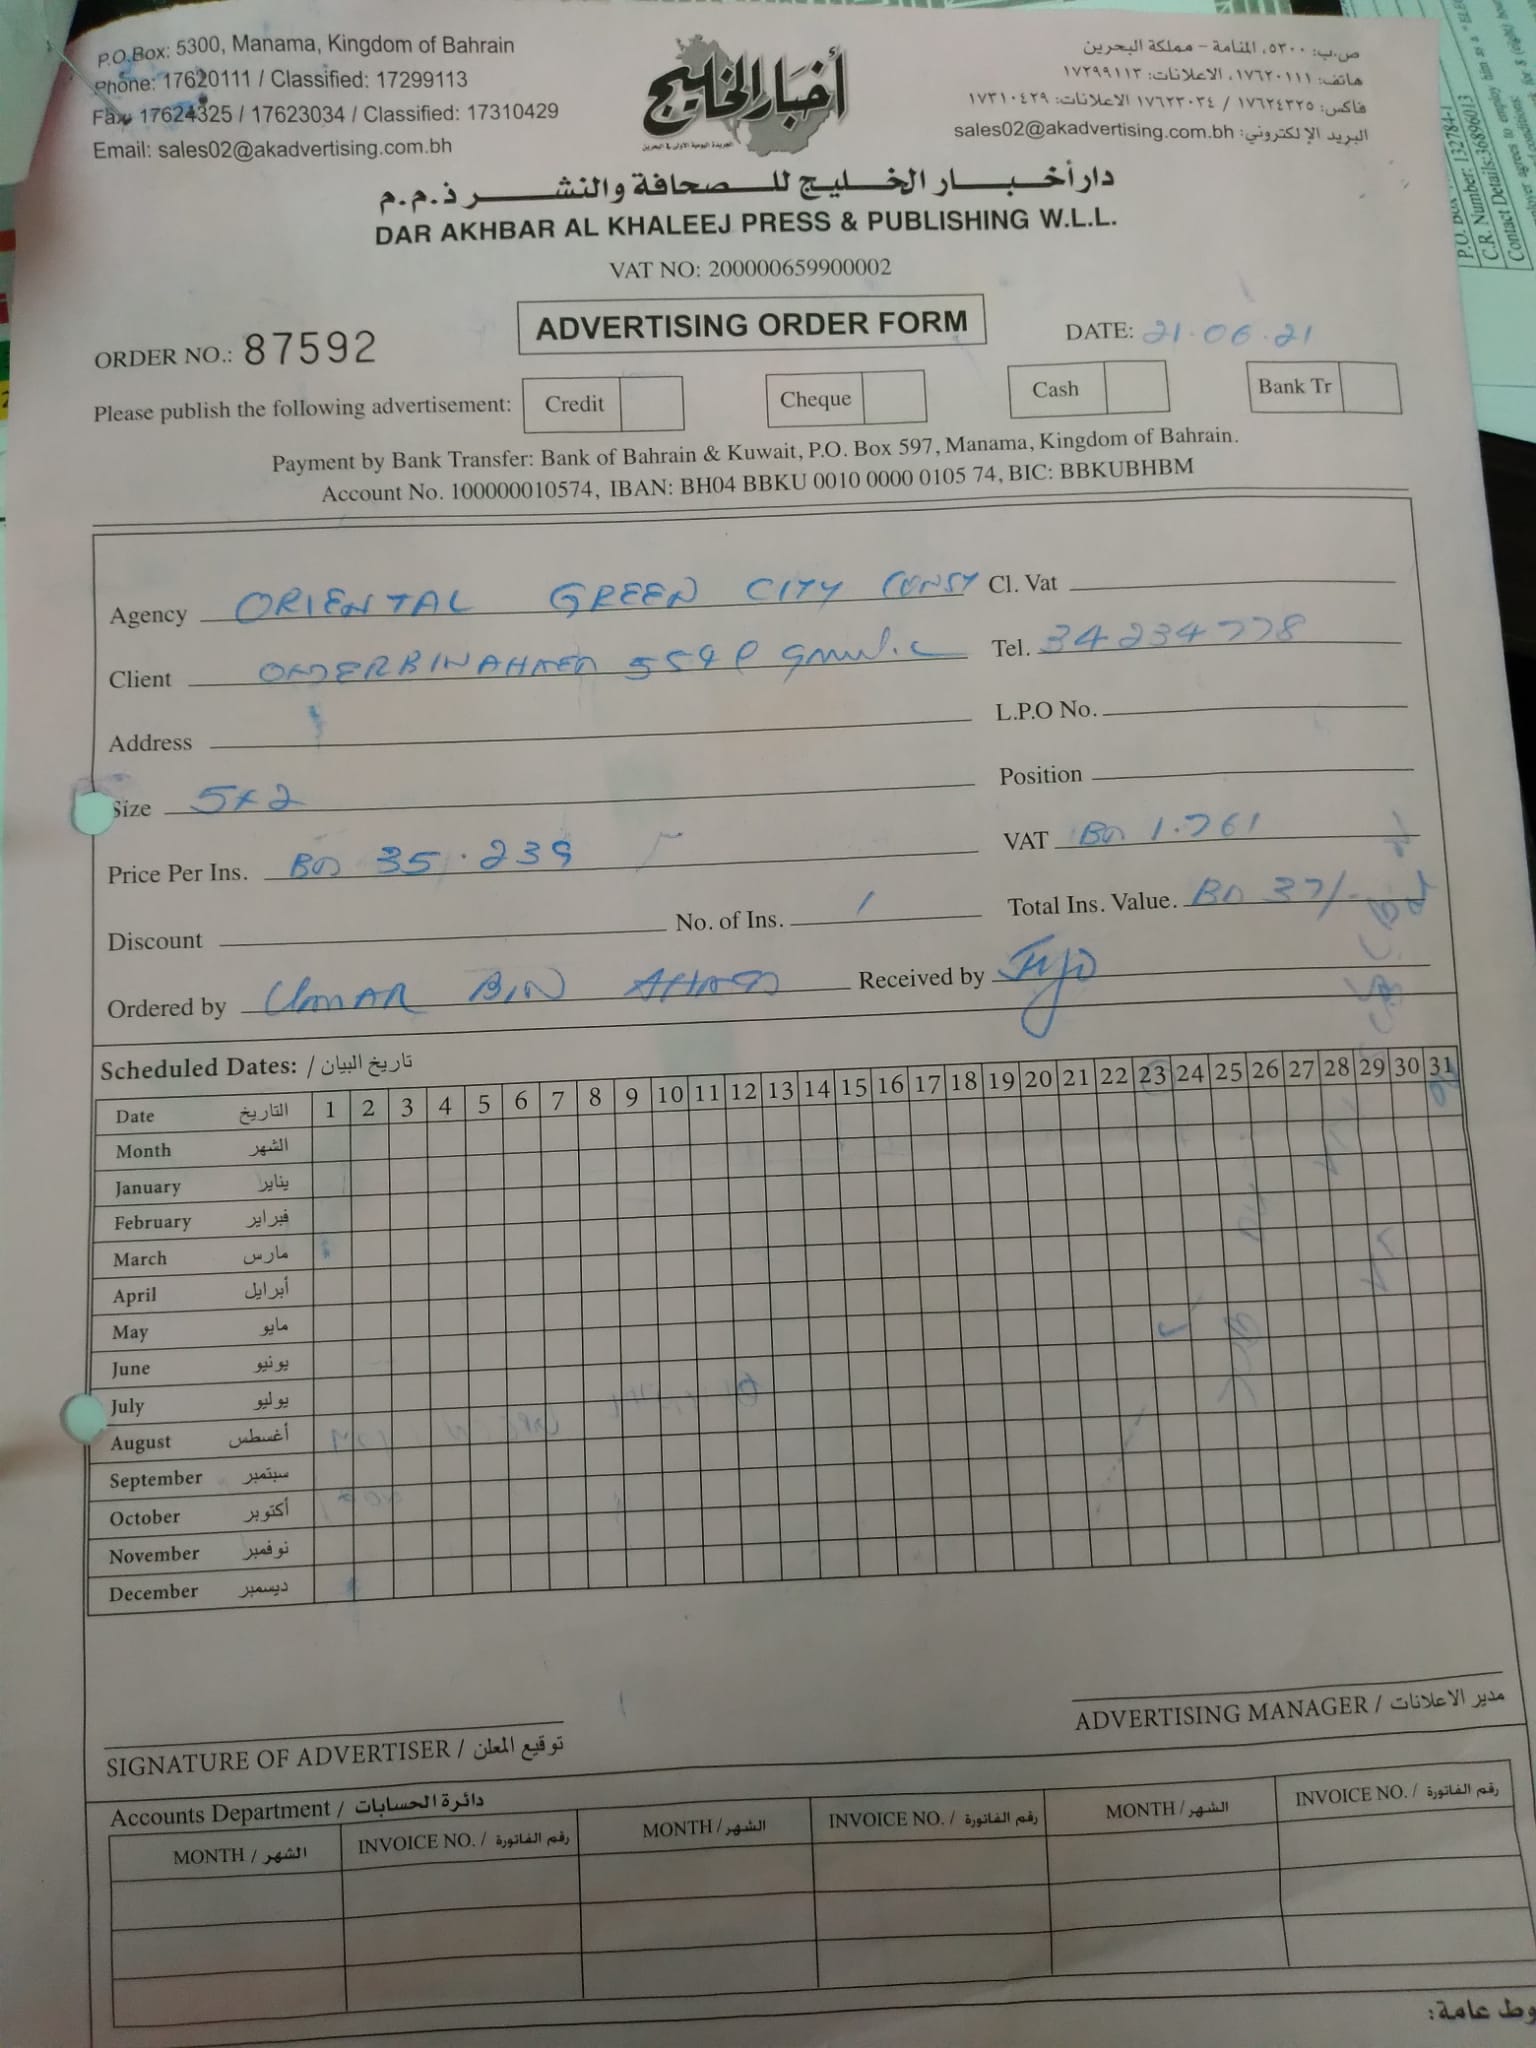 P.O.Box: 5300, Manama, Kingdom of Bahrain
Phone: 17620111 / Classified: 17299113
Fax: 17624325 / 17623034 / Classified: 17310429
Email: sales02@akadvertising.com.bh
أخبار الخليج
الجريدة اليومية الأولى في البحرين
ص.ب: ٥٣٠٠، المنامة - مملكة البحرين
هاتف: ١٧٦٢٠١١١، الاعلانات: ١٧٢٩٩١١٣
فاكس: ١٧٦٢٤٣٢٥ / ١٧٦٢٣٠٣٤ الاعلانات: ١٧٣١٠٤٢٩
البريد الإلكتروني: sales02@akadvertising.com.bh
دار أخبار الخليج للصحافة والنشر ذ.م.م
DAR AKHBAR AL KHALEEJ PRESS & PUBLISHING W.L.L.
VAT NO: 200000659900002
ORDER NO.: 87592 ADVERTISING ORDER FORM DATE: 21.06.21
Please publish the following advertisement: Credit Cheque Cash Bank Tr
Payment by Bank Transfer: Bank of Bahrain & Kuwait, P.O. Box 597, Manama, Kingdom of Bahrain.
Account No. 100000010574, IBAN: BH04 BBKU 0010 0000 0105 74, BIC: BBKUBHBM
Agency ORIENTAL GREEN CITY CONST Cl. Vat
Client Tel. 34234778
Address L.P.O No.
Size 5x2 Position
Price Per Ins. BD 35.239 VAT BD 1.761
Discount No. of Ins. 1 Total Ins. Value. BD 37/-
Ordered by UMAR BIN Received by
Scheduled Dates: / تاريخ البيان
Date التاريخ 1 2 3 4 5 6 7 8 9 10 11 12 13 14 15 16 17 18 19 20 21 22 23 24 25 26 27 28 29 30 31
Month الشهر
January يناير
February فبراير
March مارس
April أبرايل
May مايو
June يونيو
July يوليو
August أغسطس
September سبتمبر
October أكتوبر
November نوفمبر
December ديسمبر
SIGNATURE OF ADVERTISER / توقيع المعلن
ADVERTISING MANAGER / مدير الاعلانات
Accounts Department / دائرة الحسابات
MONTH / الشهر INVOICE NO. / رقم الفاتورة MONTH / الشهر INVOICE NO. / رقم الفاتورة MONTH / الشهر INVOICE NO. / رقم الفاتورة
وط عامة:
P.O. Box 132784-1
C.R. Number:
Contact Details:36896013